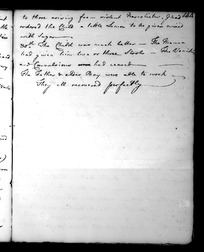 to those arising from violent Neuralgia, I had
ordered the Child a little Lemon to be given mixed
with Sugar
30th. The Child was much better — The Manna
had given him two or three Stools — The Vomiting
and Convulsions had ceased
The Father & elder Boy was able to work —
They all recovered perfectly